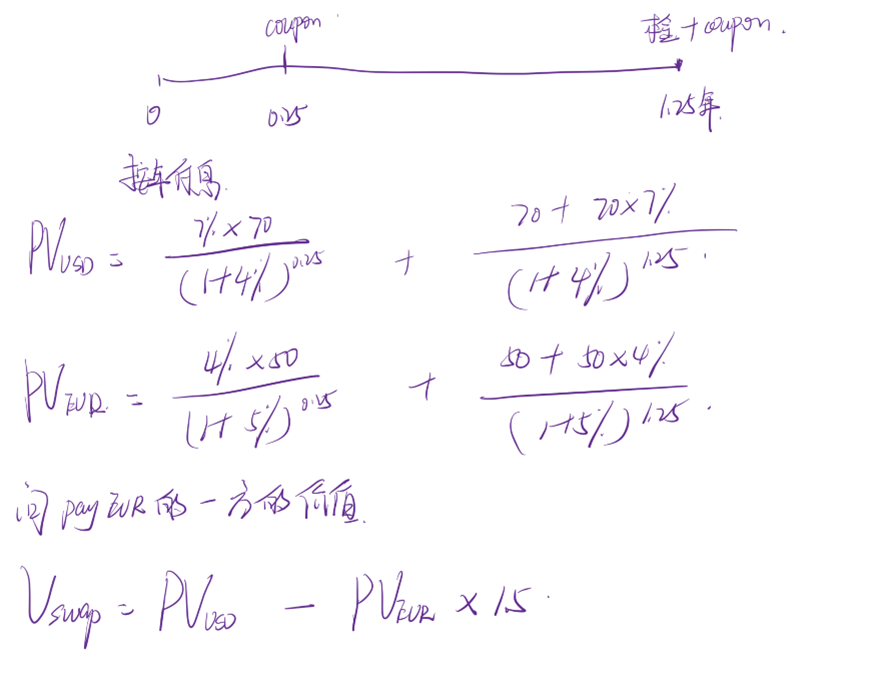 coupon 本金+coupon.
0 0.25 1.25年.
按年付息.
PV_USD = 7%×70/(1+4%)^0.25 + 70+70×7%/(1+4%)^1.25.
PV_EUR. = 4%×50/(1+5%)^0.25 + 50+50×4%/(1+5%)^1.25.
问pay EUR的一方的价值.
V_swap = PV_USD - PV_EUR × 1.5.